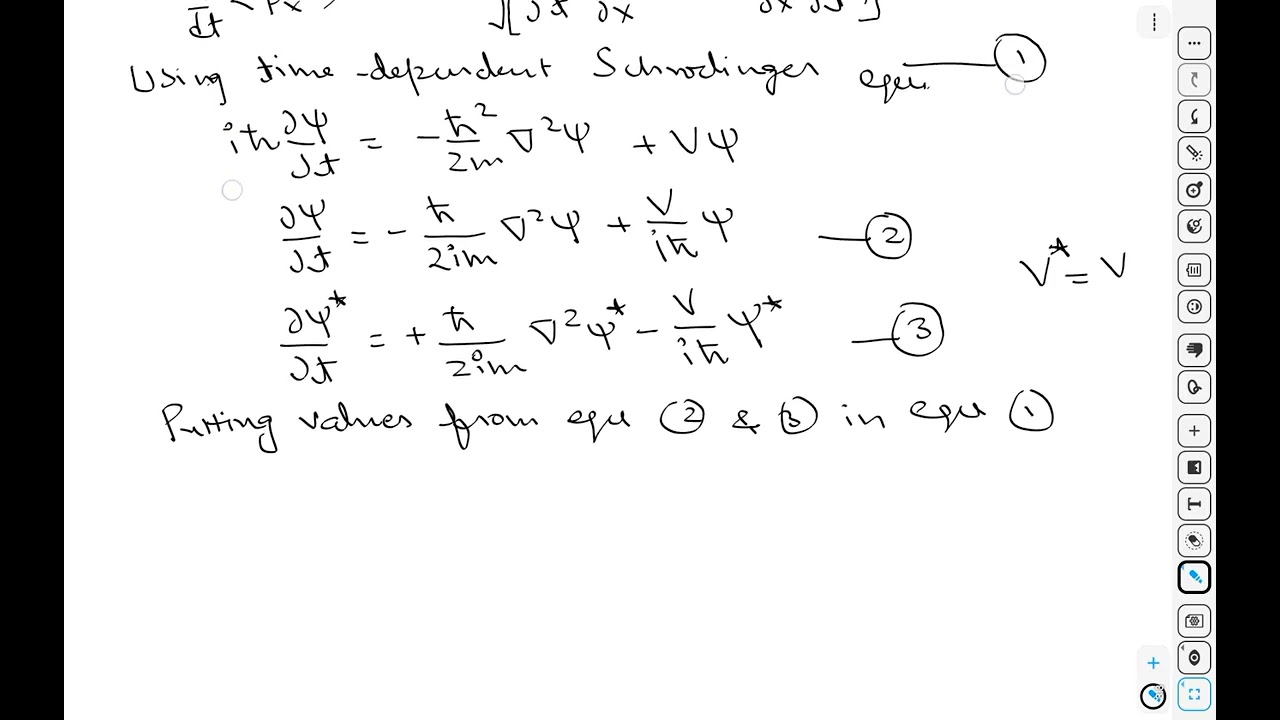 dt < Px >
∫[ ∂t ∂x ∂x ∂t ]
Using time-dependent Schrodinger equ. —①
iħ ∂ψ/∂t = -ħ²/2m ∇²ψ + Vψ
∂ψ/∂t = - ħ/2im ∇²ψ + V/iħ ψ —②
V* = V
∂ψ*/∂t = + ħ/2im ∇²ψ* - V/iħ ψ* —③
Putting values from equ ② & ③ in equ ①
T